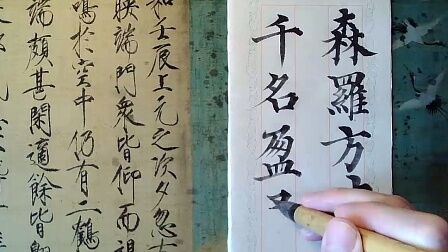 森羅方
千名盈
和壬辰上元之次夕忽
映端門衆皆仰而視
鳴於空中仍有二鶴
端頗甚閑適餘皆